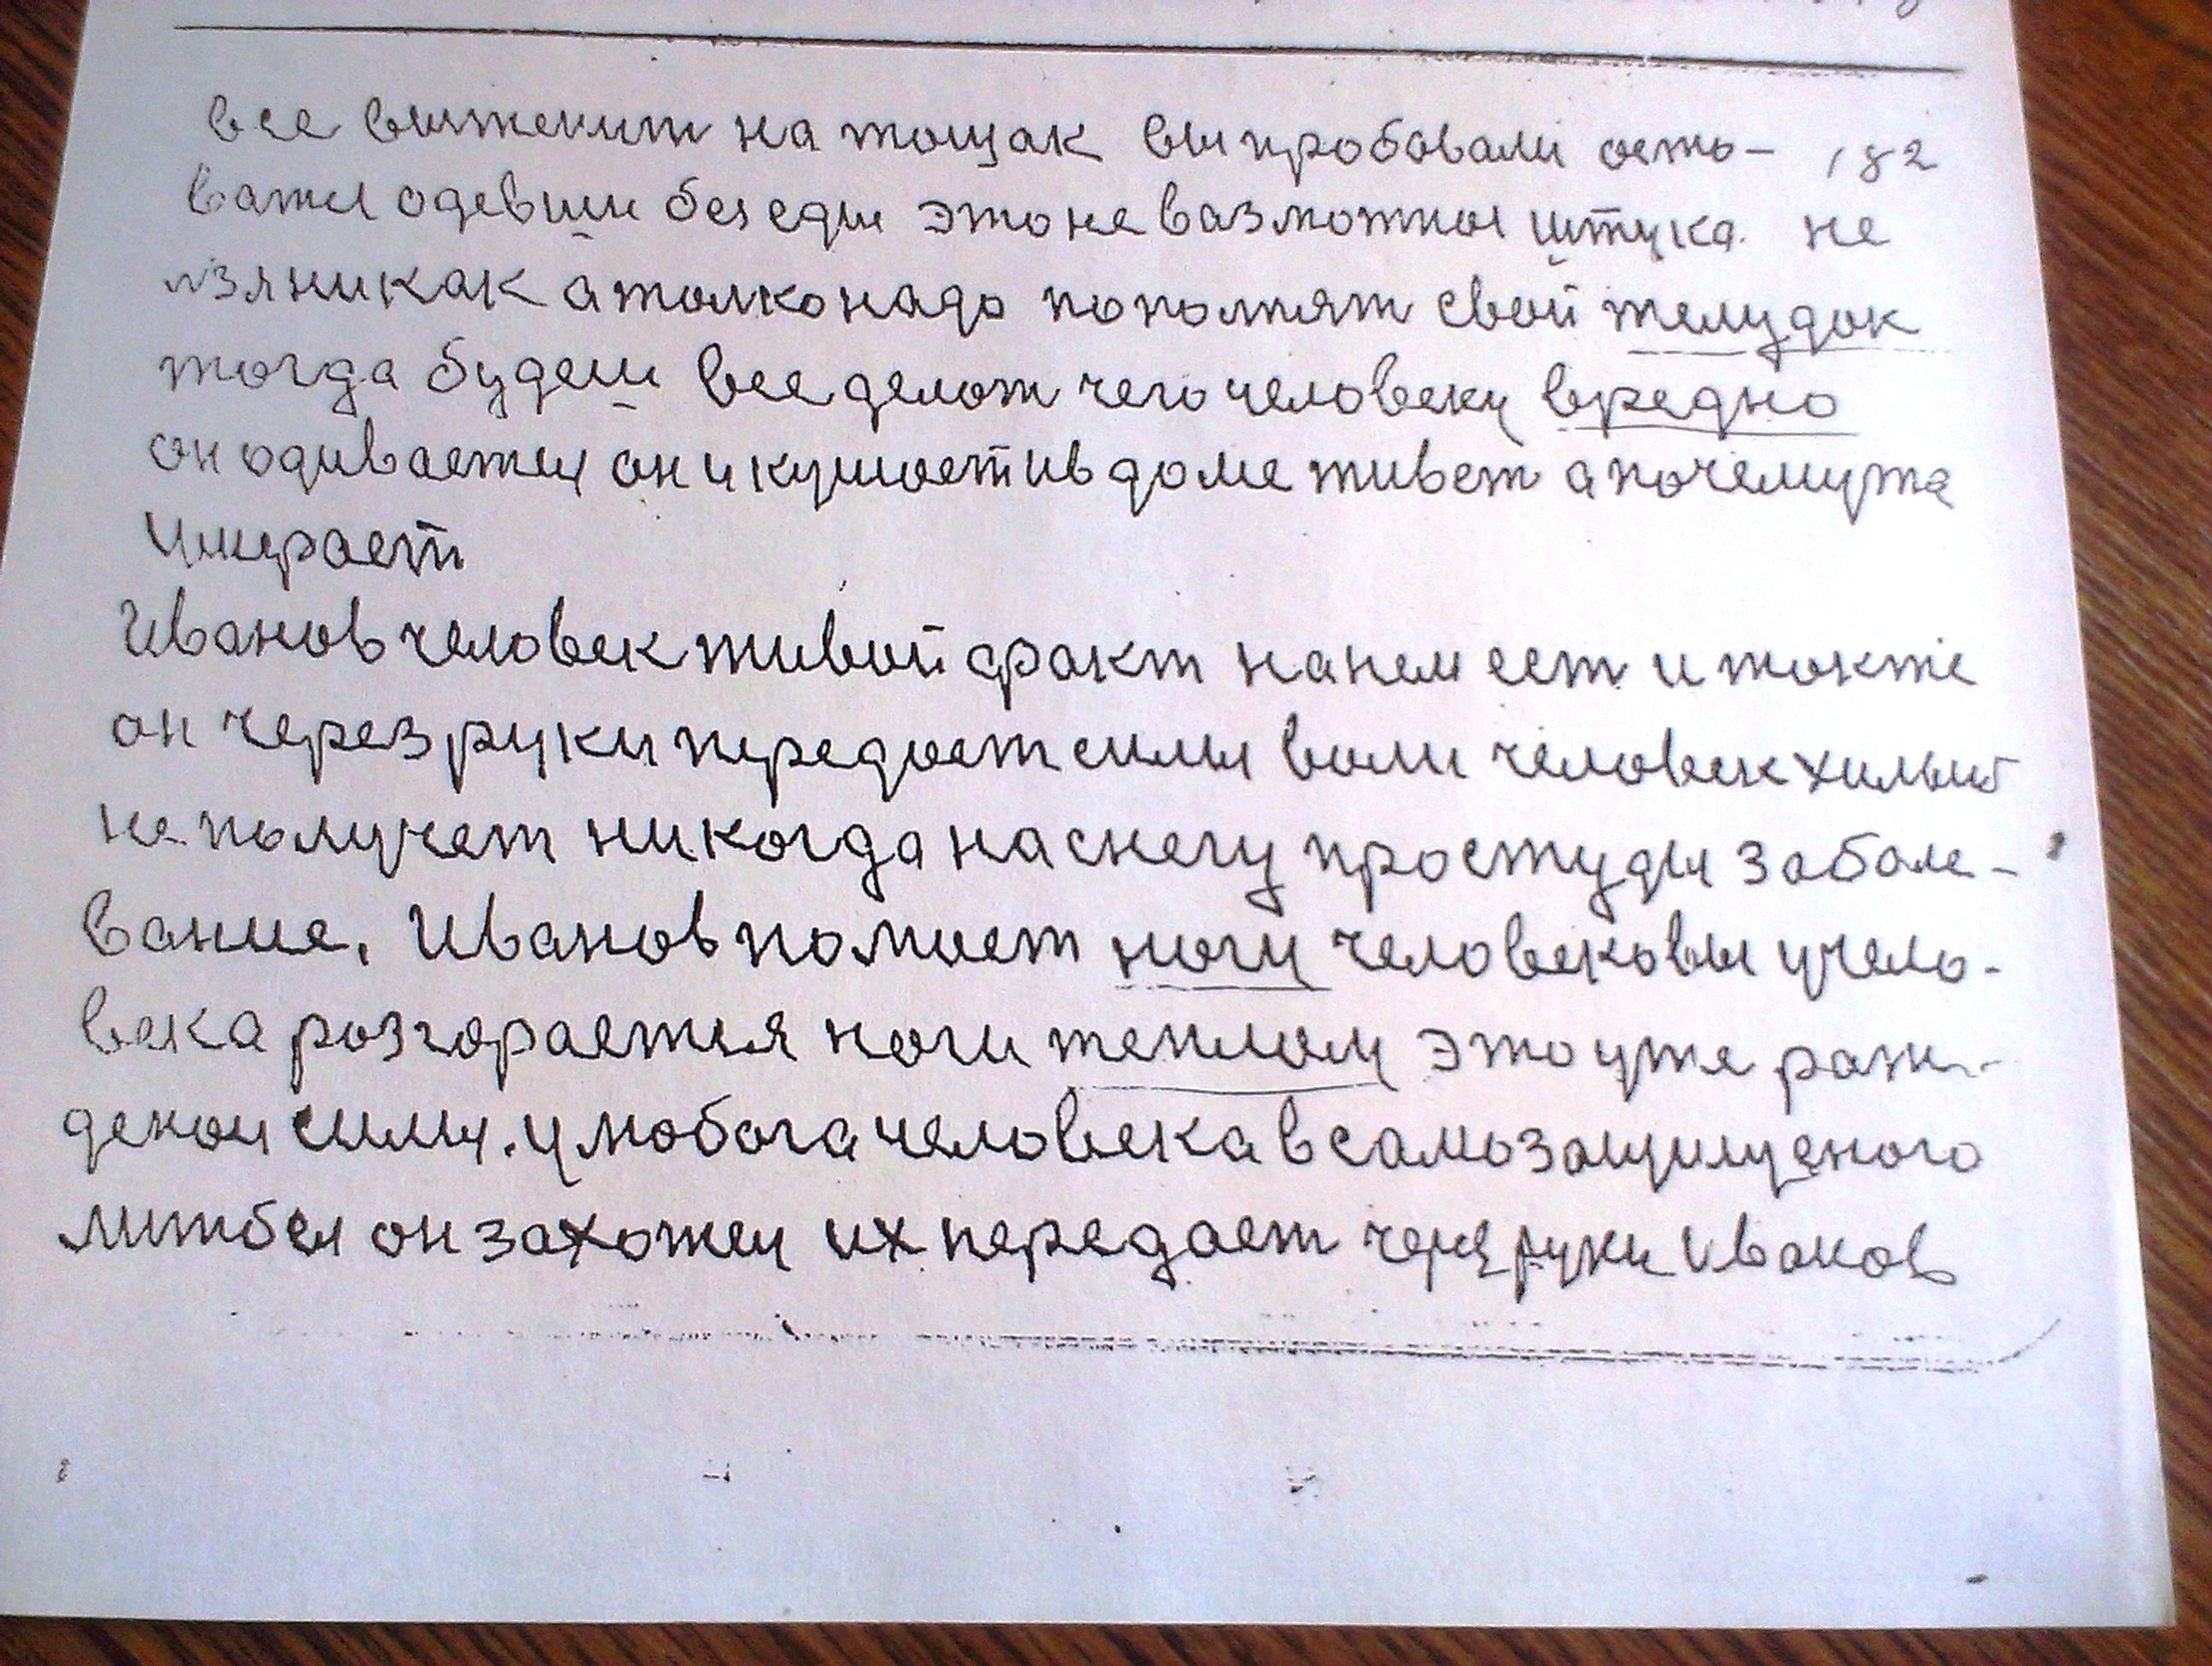 все выженит на тощак вы пробовали осто- 182
ватся одевши без еды это не вазможныя штука. не
лзя никак а толко надо попомнят свой желудок
тогда будеш все делат чего человеку вредно
он одиваетця он и кушает и в доме живет а почему та
умерает
Иванов человек живой факт на нем ест и токже
он через руки передает силы воли человек хилый
не получет никогда на снегу простуды заболе-
вание. Иванов помоет ногу человековы у чело-
века розгорается ноги теплом это уже рож-
деном силы. у любога человека в самозащищеного
литбы он захожеи их передает через руки Иванов